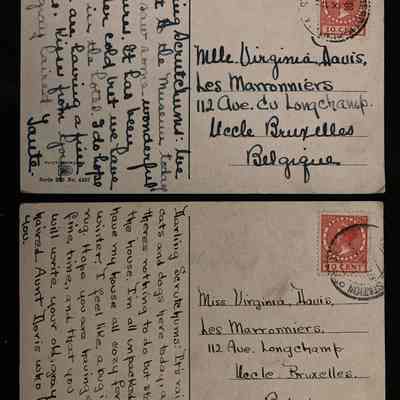 ing Scrutchums: I've
t to the Museum today
saw some wonderful
ures. It has been
er cold but we have
in the hotel. I do hope
are having a fine
s. Kisses from your
gray haired
Tante.
10 CENT
Mlle. Virginia Davis,
Les Marronniers,
112 Ave. du Longchamp.
Uccle Bruxelles
Belgique
Darling Scrutchums: It's rai
cats and dogs here today, a
theres nothing to do but st
the house. I'm all unpacked
have my house all cozy for
winter. I feel like a bug i
rug. Hope you are having
fine time, and that you
will write your old, gray
haired Aunt Doris who
you.
10 CENT
STATION
Miss Virginia Davis,
Les Marronniers,
112 Ave. Longchamp
Uccle Bruxelles.